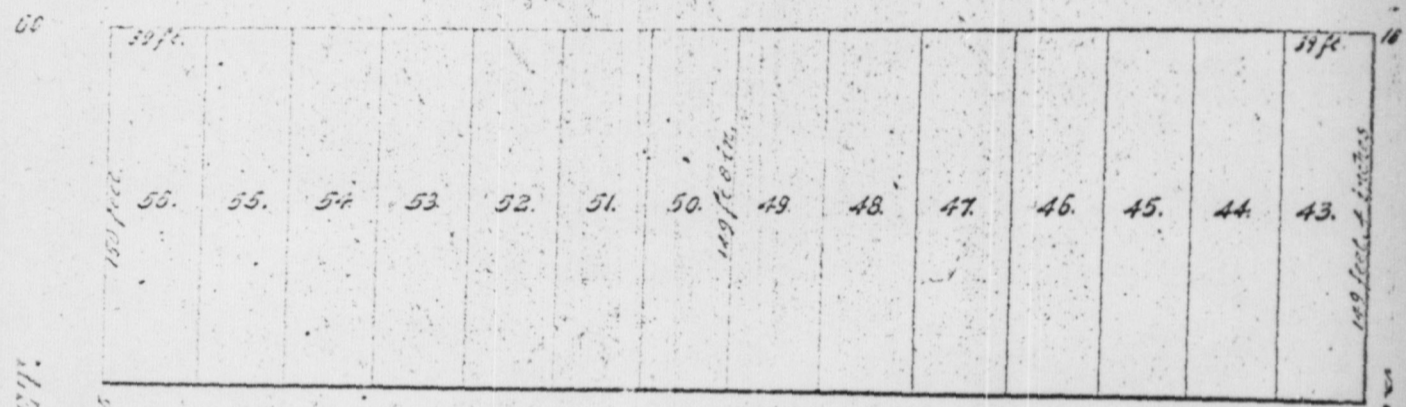 60
39 ft.
39 ft.
16
150 feet
56.
55.
54.
53.
52.
51.
50.
149 ft 8 in.
49.
48.
47.
46.
45.
44.
43.
149 feet 4 inches